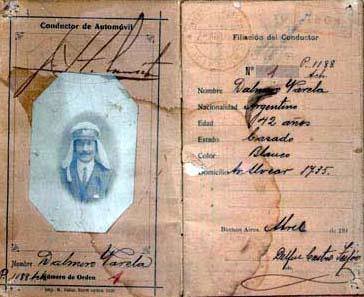 Conductor de Automóvil
Nombre Dalmiro Varela
P. 1188
Número de Orden 1
Filiación del Conductor
P. 1188
No. 1
Nombre Dalmiro Varela
Nacionalidad Argentino
Edad 42 años
Estado Casado
Color Blanco
Domicilio Alvear 1735.
Buenos Aires, Abril de 191